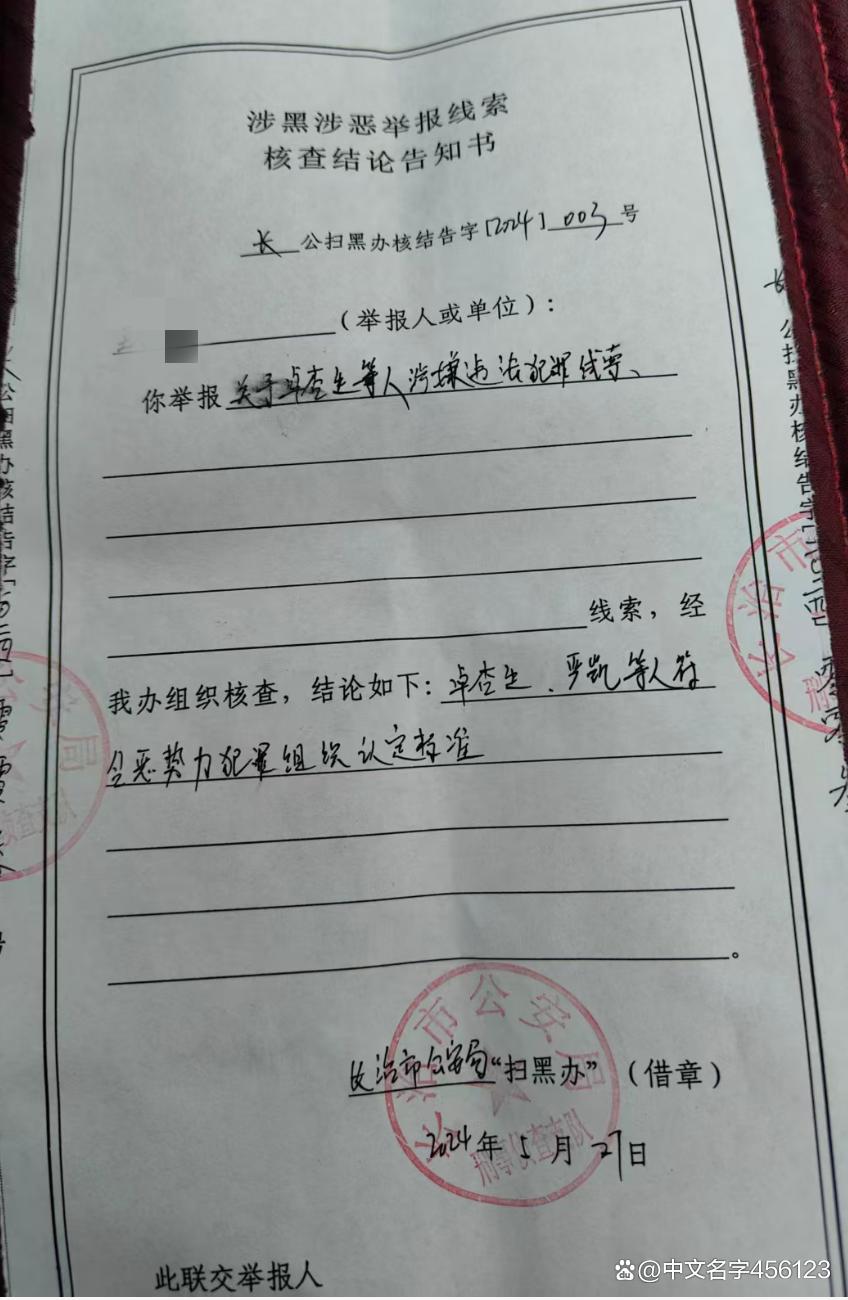 涉黑涉恶举报线索
核查结论告知书
长公扫黑办核结告字[2024]003号
(举报人或单位):
你举报关于卓杏生等人涉嫌违法犯罪线索、
线索,经
我办组织核查,结论如下:卓杏生、严凯等人符
合恶势力犯罪组织认定标准
。
长治市公安局“扫黑办”(借章)
2024年5月27日
此联交举报人
长治市公安局
刑事侦查支队
公扫黑办核结告字
@中文名字456123